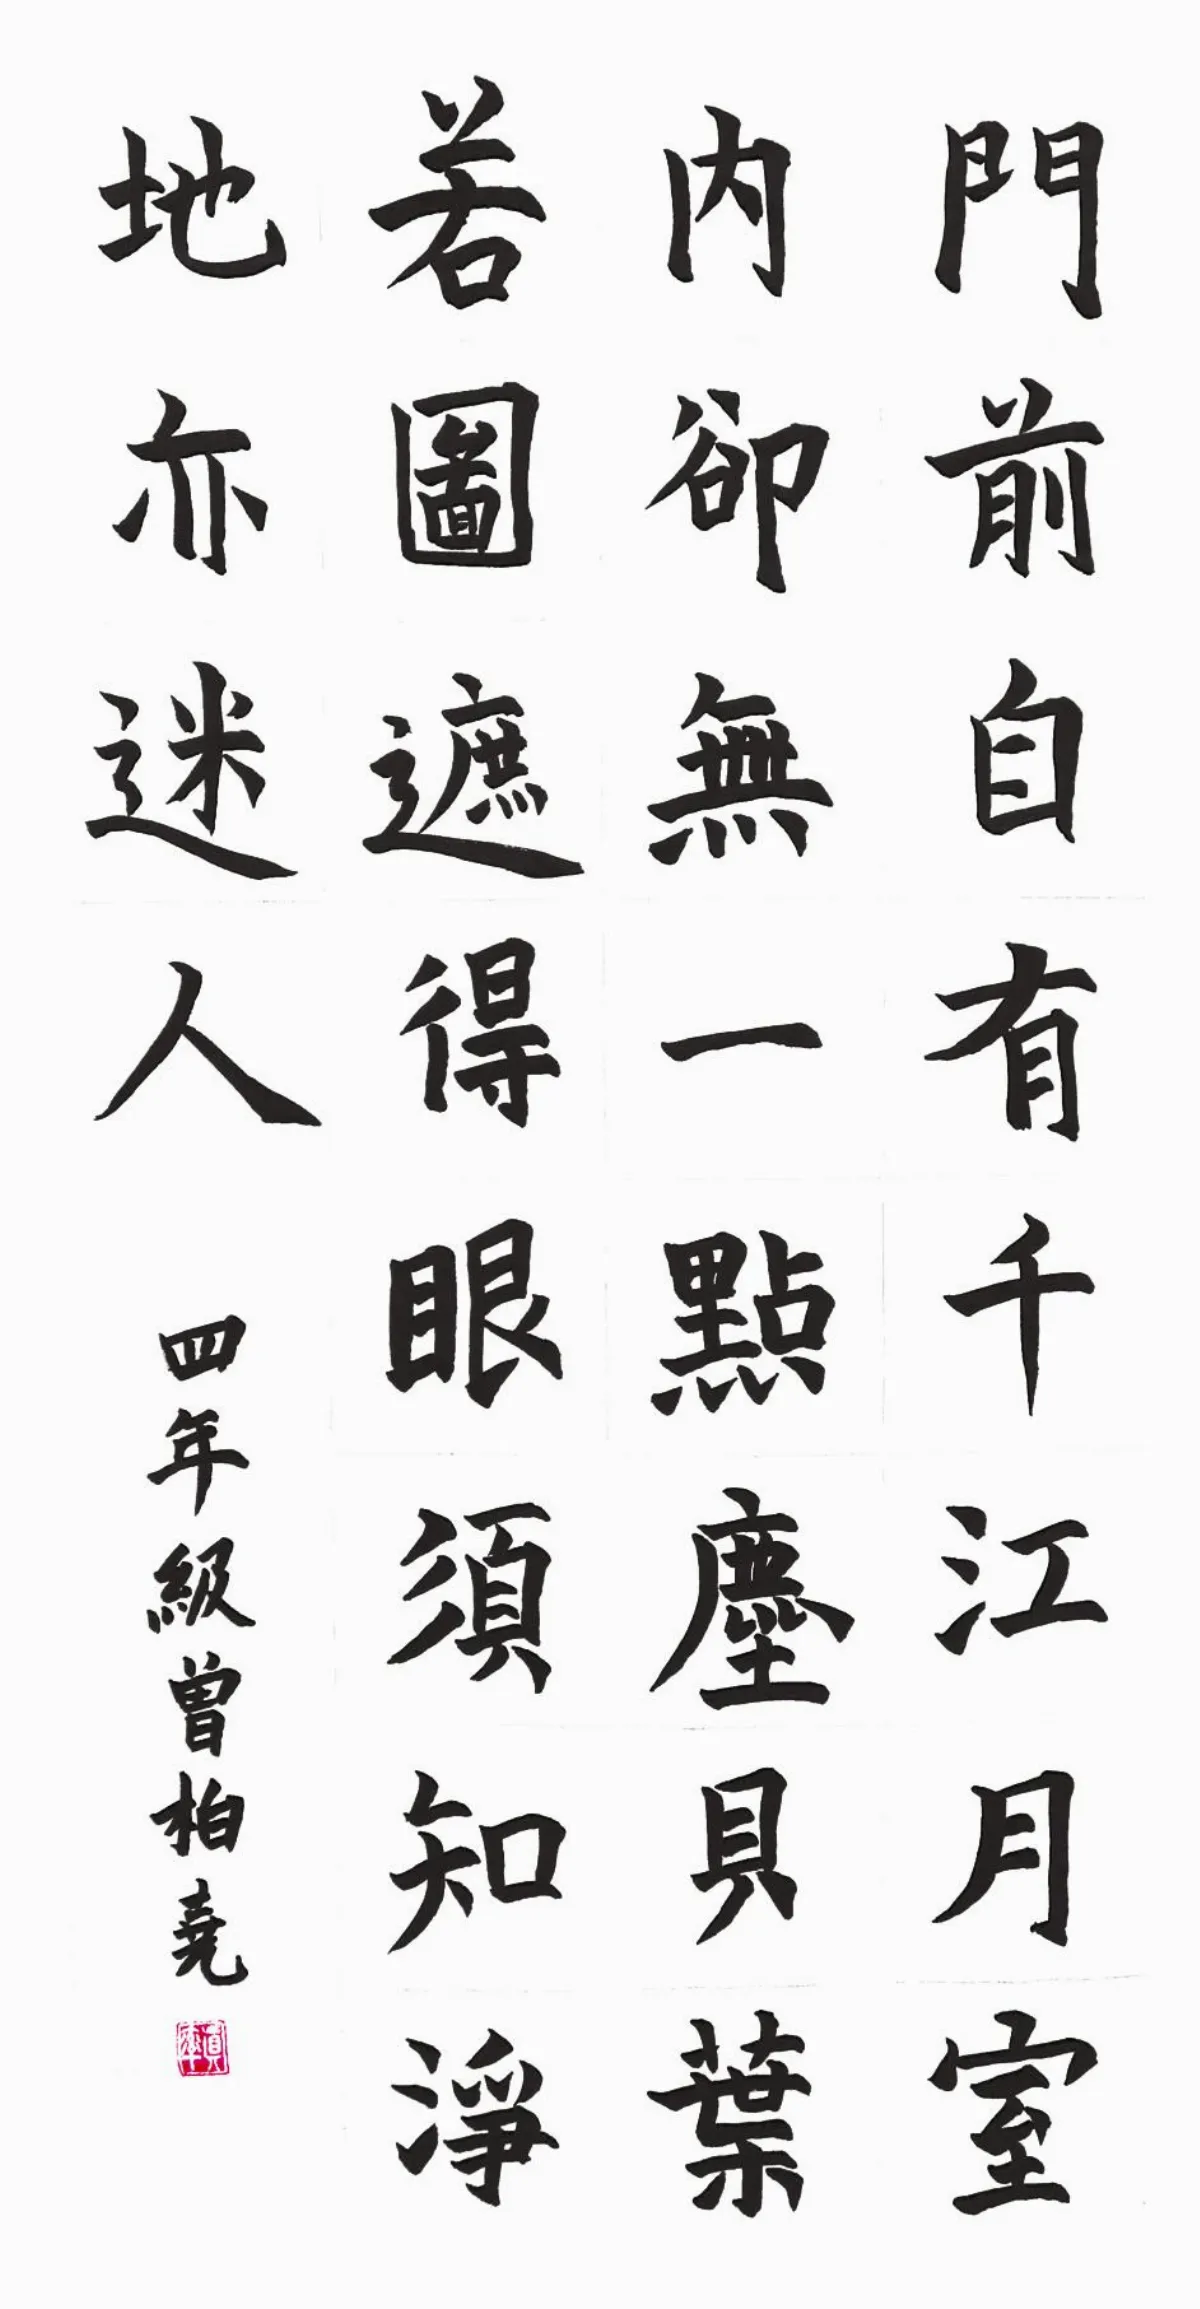 門前自有千江月室
內卻無一點塵貝葉
若圖遮得眼須知淨
地亦迷人
四年級曾柏堯